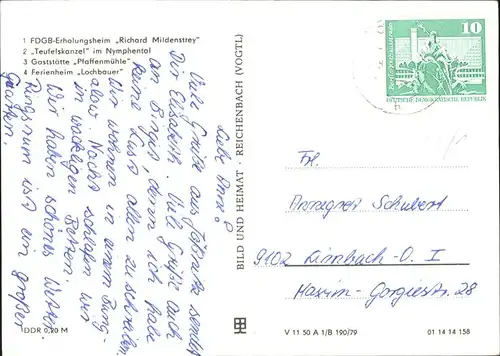 1 FDGB-Erholungsheim „Richard Mildenstrey”
2 „Teufelskanzel” im Nymphental
3 Gaststätte „Pfaffenmühle”
4 Ferienheim „Lochbauer”
Liebe Anne!
Viele Grüße aus Jößnitz sendet
Dir Elisabeth. Viele Grüße auch
an Birgit, denn ich habe
keine Lust allen zu schreiben.
Wir wohnen in einem Bung-
alow. Nachts schlafen wir
in wackligen Betten.
Wir haben schönes Wetter.
Ringsrum ist ein großer
Garten.
DDR 0,20 M
BILD UND HEIMAT · REICHENBACH (VOGTL)
V 11 50 A 1/B 190/79
01 14 14 158
10
DEUTSCHE DEMOKRATISCHE REPUBLIK
Frl.
Annegret Schubert
9102 Limbach-O. I
Maxim-Gorgiestr. 28